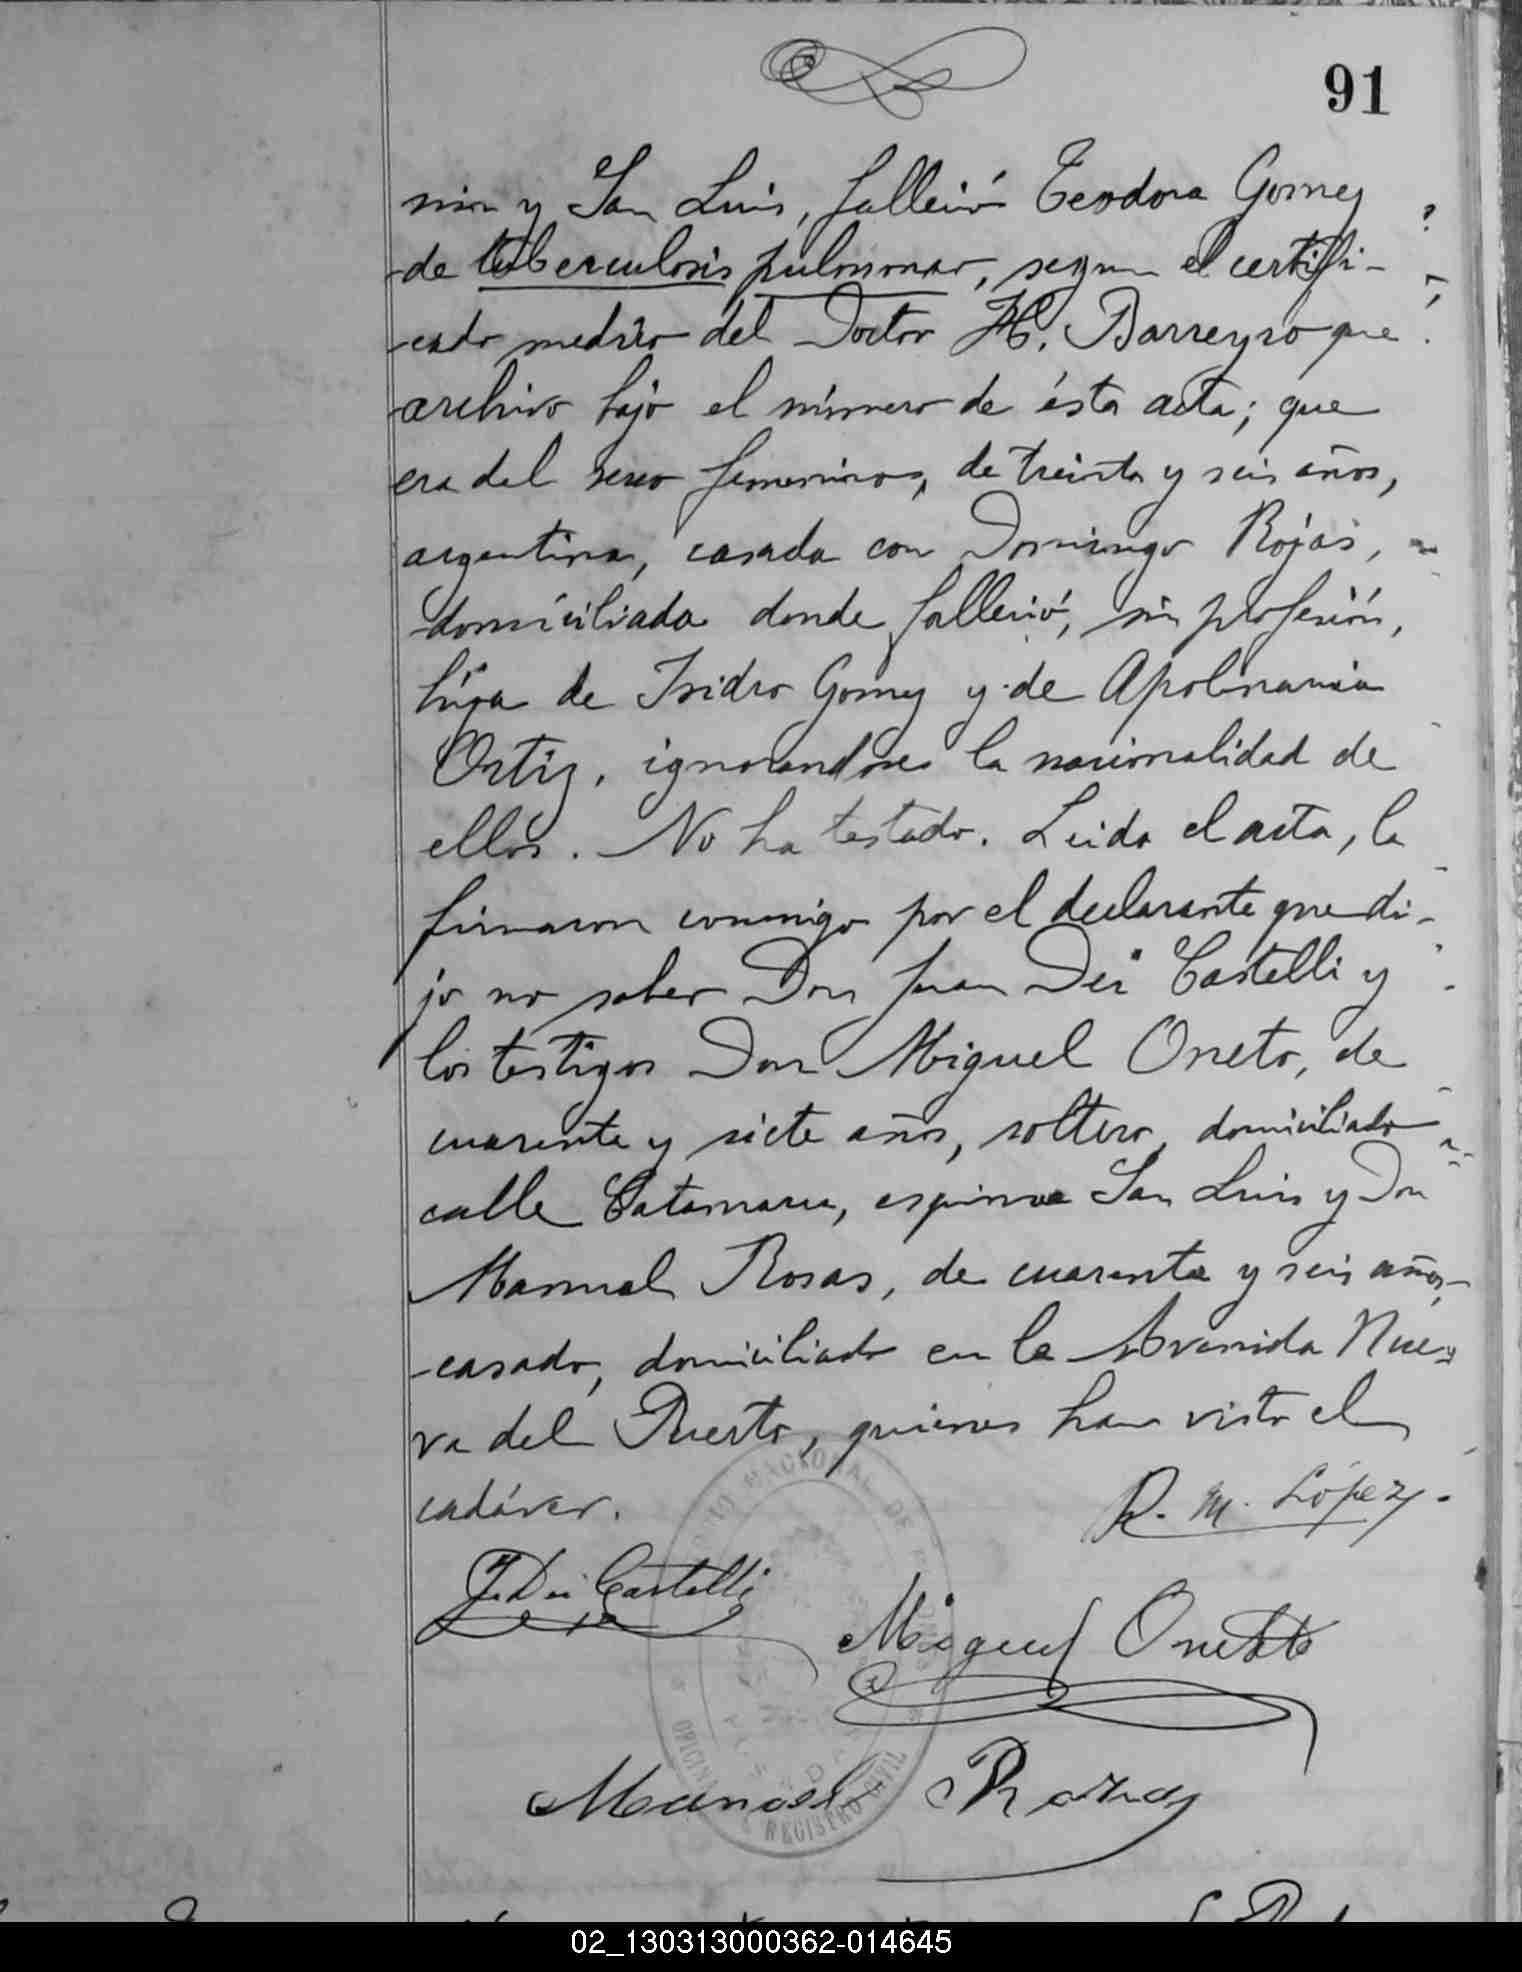 91
y San Luis, falleció Teodora Gomez
de tuberculosis pulmonar, segun el certifi-
cado medico del Doctor H. Barreyro que
archivo bajo el número de ésta acta; que
era del sexo femenino, de treinta y seis años,
argentina, casada con Domingo Rojas,
domiciliada donde falleció, sin profesión,
hija de Isidro Gomez y de Apolinaria
Ortiz, ignorandose la nacionalidad de
ellos. No ha testado. Leida el acta, la
firmaron conmigo por el declarante que di-
jo no saber Don Juan Dei Castelli y
los testigos Don Miguel Oneto, de
cuarenta y siete años, soltero, domiciliado
calle Catamarca, esquina San Luis y Don
Manuel Rosas, de cuarenta y seis años,
casado, domiciliado en la Avenida Nue-
va del Puerto, quienes han visto el
cadáver.
R. M. López.
J. Dei Castelli
Miguel Onetto
Manuel Rozas
NACIONAL DE
OFICINA REGISTRO CIVIL
02_130313000362-014645